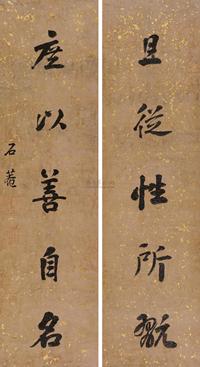 旦從性所翫
庶以善自名
石菴